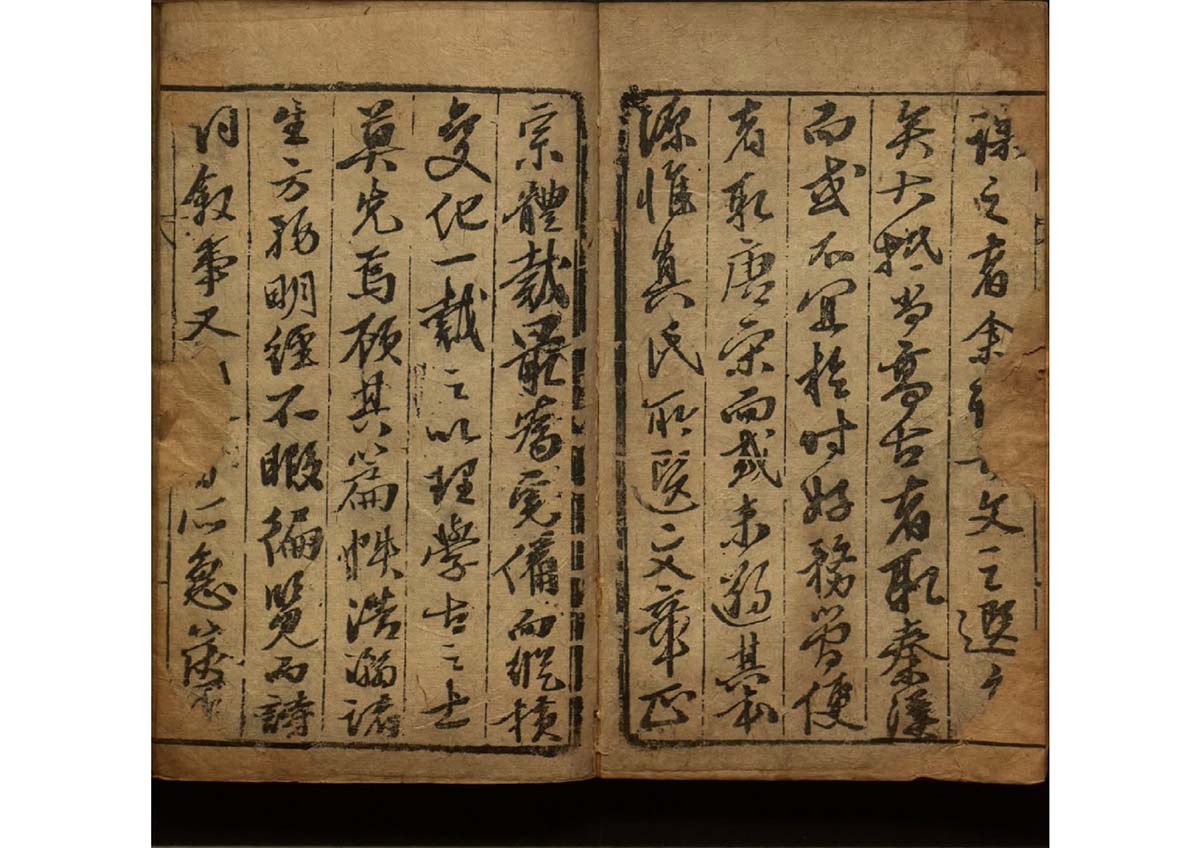 之者余文之選
矣大抵尚高古者取秦漢
而或不宜於時好務簡便
者取唐宋而或未遡其本
源惟真氏所選文章正
宗體裁最嵬備而縱橫
變化一裁之以理學古之士
莫先焉顧其篇帙浩瀚諸
生方務明經不暇徧覽而詩
詞敘事又所急